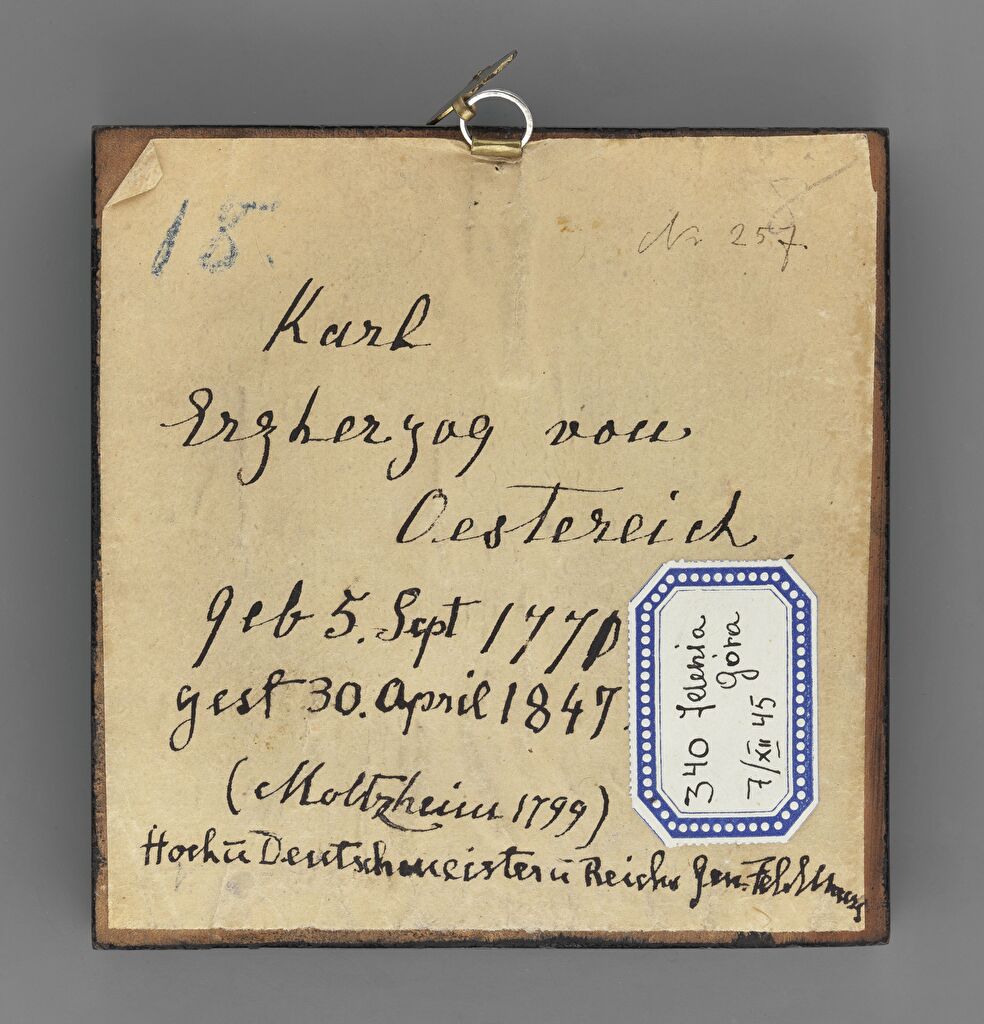 18.
Nr 257.
Karl
Erzherzog von
Oestereich
geb 5. Sept 1771
gest 30. April 1847.
(Moltzheim 1799)
Hoch ū Deutschmeister ū Reichs Gen.
340 Jelenia
Góra
7/XII 45